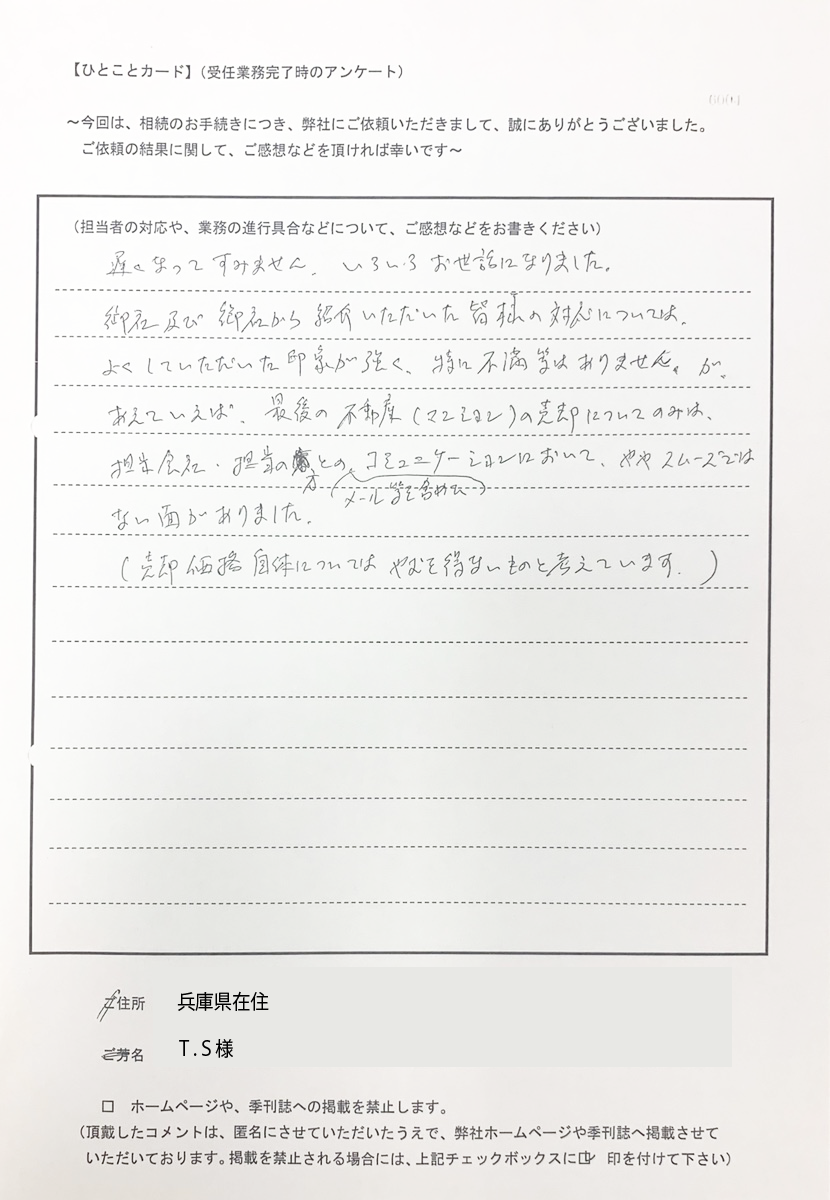 【ひとことカード】（受任業務完了時のアンケート）
～今回は、相続のお手続きにつき、弊社にご依頼いただきまして、誠にありがとうございました。
ご依頼の結果に関して、ご感想などを頂ければ幸いです～
（担当者の対応や、業務の進行具合などについて、ご感想などをお書きください）
遅くなってすみません。いろいろお世話になりました。
御社及び御社から紹介いただいた皆様の対応については、
よくしていただいた印象が強く、特に不満等はありません。が、
あえていえば、最後の不動産（マンション）の売却についてのみは、
担当会社・担当の方との、コミュニケーションにおいて、ややスムーズでは
（メール等を含めて）
ない面がありました。
（売却価格自体についてはやむを得ないものと考えています。）
ご住所 兵庫県在住
ご芳名 T.S様
□ ホームページや、季刊誌への掲載を禁止します。
（頂戴したコメントは、匿名にさせていただいたうえで、弊社ホームページや季刊誌へ掲載させて
いただいております。掲載を禁止される場合には、上記チェックボックスに☑ 印を付けて下さい）